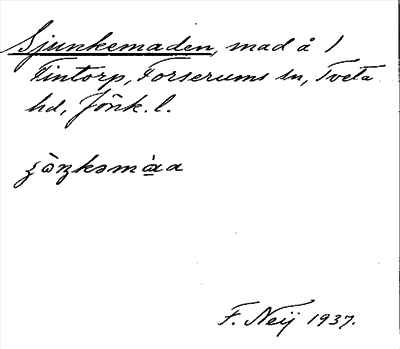 Sjunkemaden, mad å 1
Tintorp, Forserums sn, Tveta
hd, Jönk. l.
F. Neij 1937.